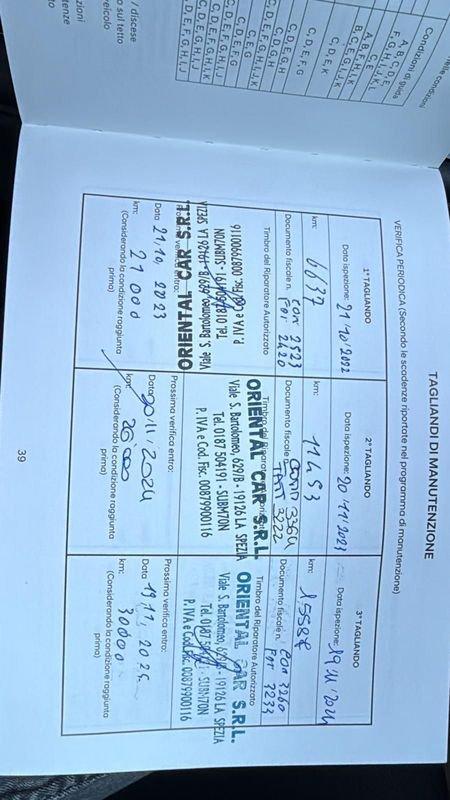 TAGLIANDI DI MANUTENZIONE
VERIFICA PERIODICA (Secondo le scadenze riportate nel programma di manutenzione)
1° TAGLIANDO
Data ispezione: 21/10/2022
km: 6637
Documento fiscale n. con 2823
FOT 2420
Timbro del Riparatore Autorizzato
ORIENTAL CAR S.R.L.
Viale S. Bartolomeo, 629/B - 19126 LA SPEZIA
Tel. 0187 504191 - SUBM70N
P. IVA e Cod. Fisc. 00879900116
Prossima verifica entro:
Data 21,10,2023
km: 21000
(Considerando la condizione raggiunta
prima)
2° TAGLIANDO
Data ispezione: 20/11/2023
km: 11493
Documento fiscale n. 3364
3222
Timbro del Riparatore Autorizzato
ORIENTAL CAR S.R.L.
Viale S. Bartolomeo, 629/B - 19126 LA SPEZIA
Tel. 0187 504191 - SUBM70N
P. IVA e Cod. Fisc. 00879900116
Prossima verifica entro:
Data 20/11/2024
km: 26000
(Considerando la condizione raggiunta
prima)
3° TAGLIANDO
Data ispezione: 19/11/2024
km: 15587
Documento fiscale n. con 3260
FOT 3233
Timbro del Riparatore Autorizzato
ORIENTAL CAR S.R.L.
Viale S. Bartolomeo, 629/B - 19126 LA SPEZIA
Tel. 0187 504191 - SUBM70N
P. IVA e Cod. Fisc. 00879900116
Prossima verifica entro:
Data 19,11,2025
km: 30000
(Considerando la condizione raggiunta
prima)
39
Condizioni di guida
A, B, C, D, E,
F, G, H, I, J, K, L
C, D, E, K
C, D, E, F, G
C, D, E, G, H
C, D, G, H
C, D, E, G
/ discese
sul tetto